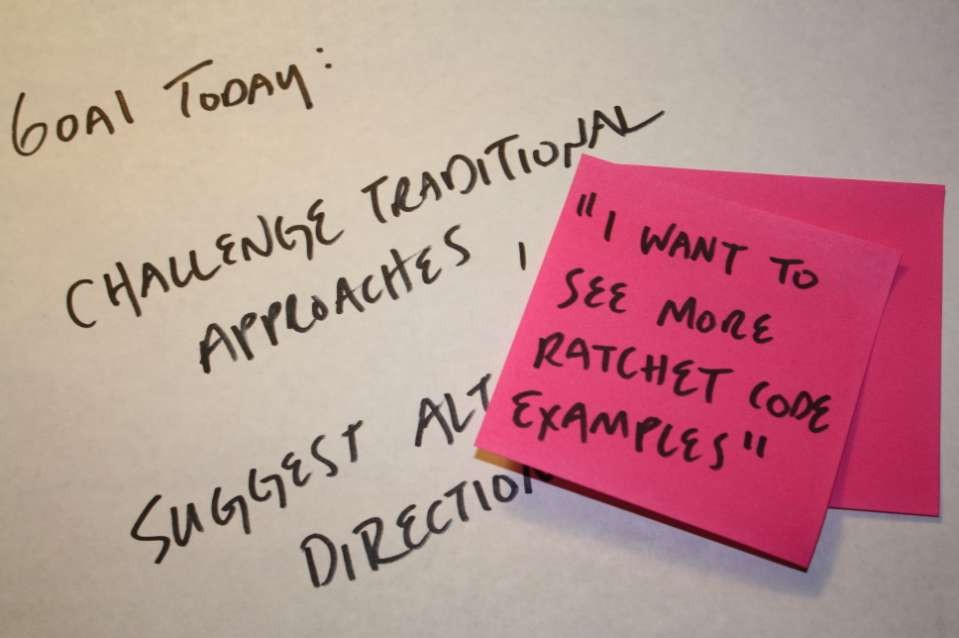 GOAL TODAY:
CHALLENGE TRADITIONAL
APPROACHES,
SUGGEST ALT
DIRECTION
"I WANT TO
SEE MORE
RATCHET CODE
EXAMPLES"